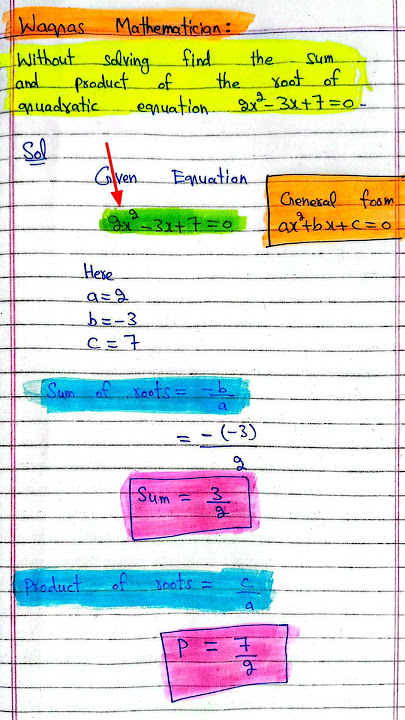 Waqas Mathematician:
Without solving find the sum
and product of the root of
quadratic equation 2x²-3x+7=0-
Sol
Given Equation
2x²-3x+7=0
General form
ax²+bx+c=0
Here
a=2
b=-3
c=7
Sum of roots = -b/a
= -(-3)/2
Sum = 3/2
Product of roots = c/a
P = 7/2